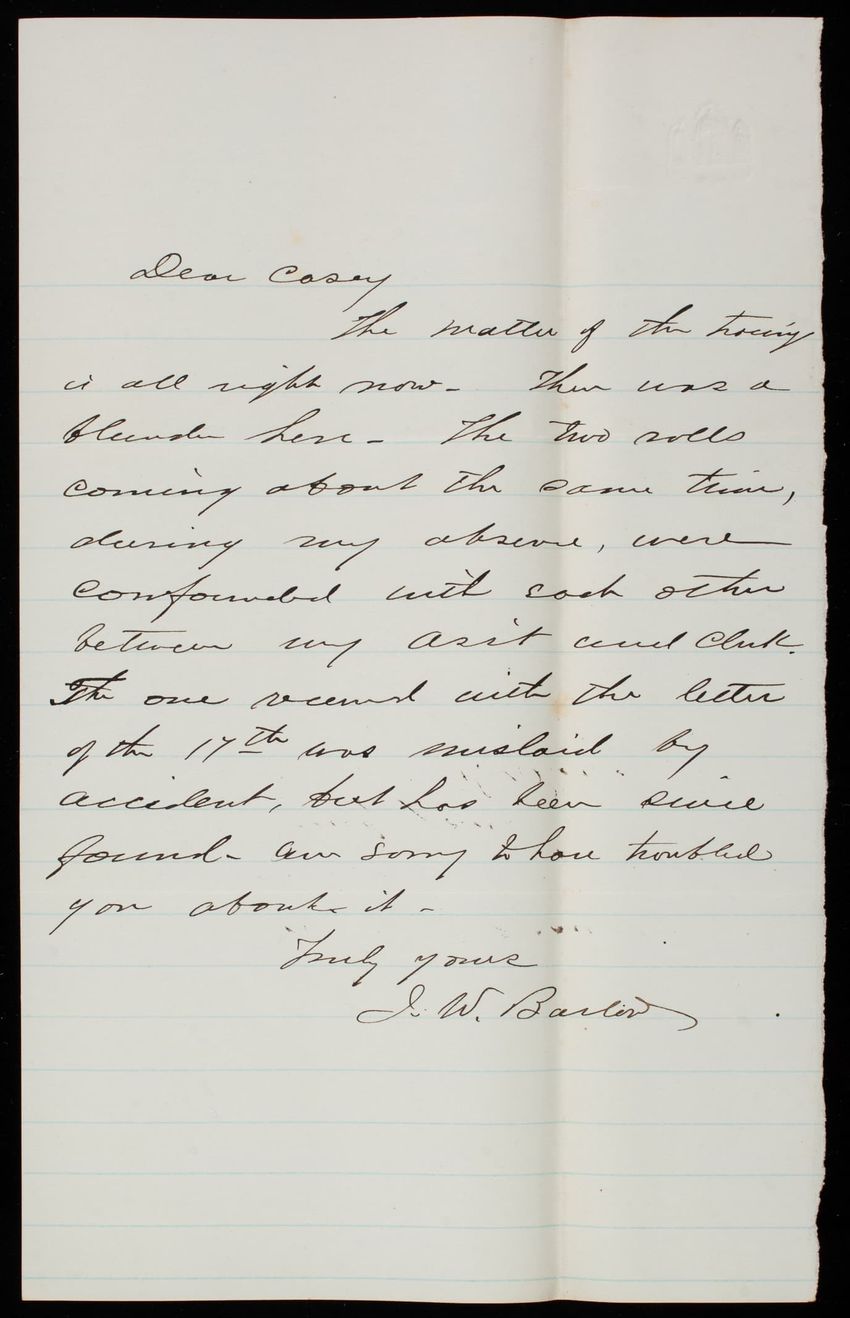 Dear Casey
The matter of the tracing
is all right now - There was a
blunder here - The two rolls
coming about the same time,
during my absence, were
confounded with each other
between my Ass't and Clerk.
The one received with the letter
of the 17th was mislaid by
accident, but has been since
found - Am sorry to have troubled
you about it -
Truly yours
J. W. Barlow